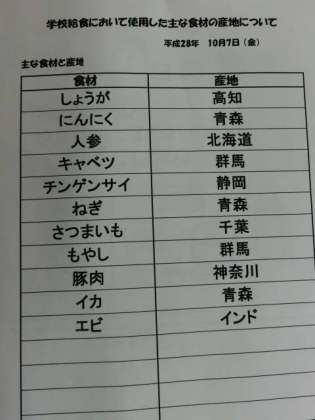 学校給食において使用した主な食材の産地について
平成28年　10月7日（金）
主な食材と産地
食材　産地
しょうが　高知
にんにく　青森
人参　北海道
キャベツ　群馬
チンゲンサイ　静岡
ねぎ　青森
さつまいも　千葉
もやし　群馬
豚肉　神奈川
イカ　青森
エビ　インド